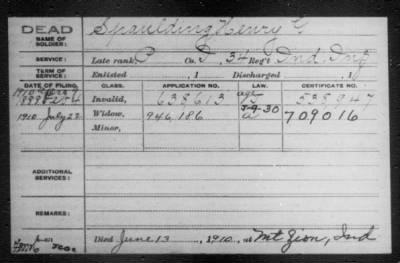 DEAD
NAME OF SOLDIER: Spaulding Henry G
SERVICE: Late rank P Co. D, 34 Reg't Ind. Inf
TERM OF SERVICE: Enlisted , 1 Discharged , 1
DATE OF FILING. CLASS. APPLICATION NO. LAW. CERTIFICATE NO.
1888 Invalid, 638613 538947
1910 July 22 Widow, 946186 709016
5-9-30
Minor,
ADDITIONAL SERVICES:
REMARKS:
Died June 13, 1910, at Mt Zion, Ind